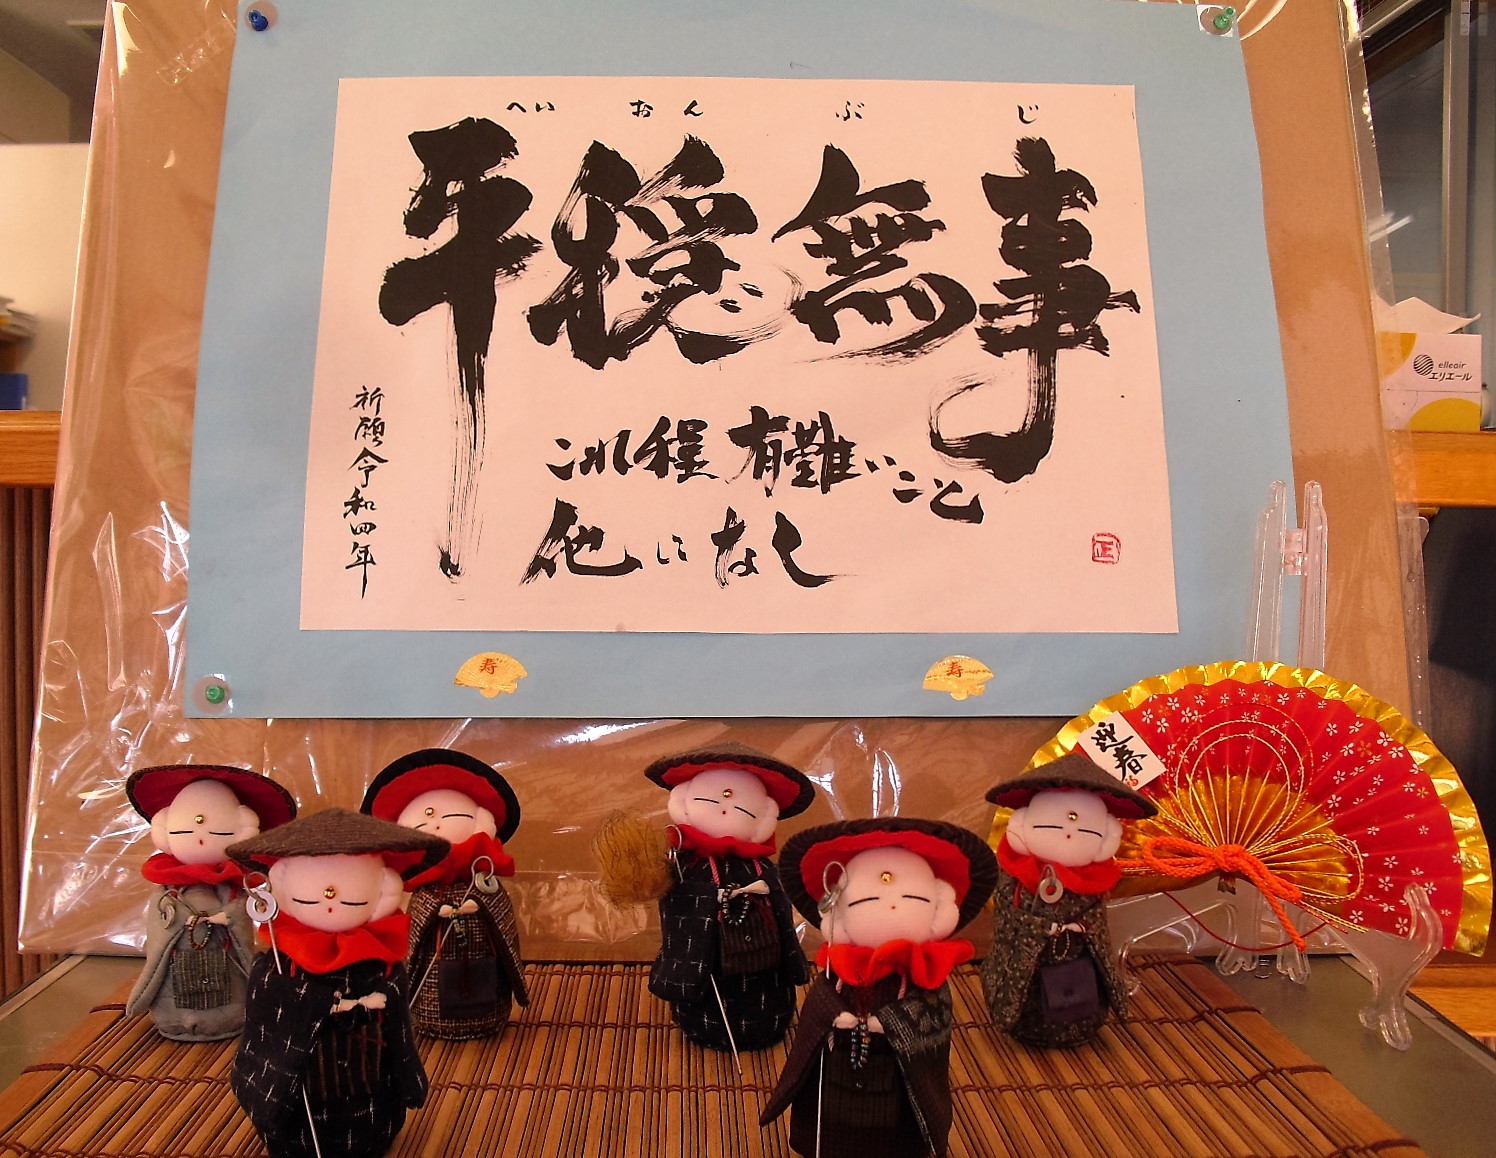 へい おん ぶ じ
平穏無事
これ程有難いこと
他になし
祈願令和四年
正
寿
寿
迎春
elleair
エリエール